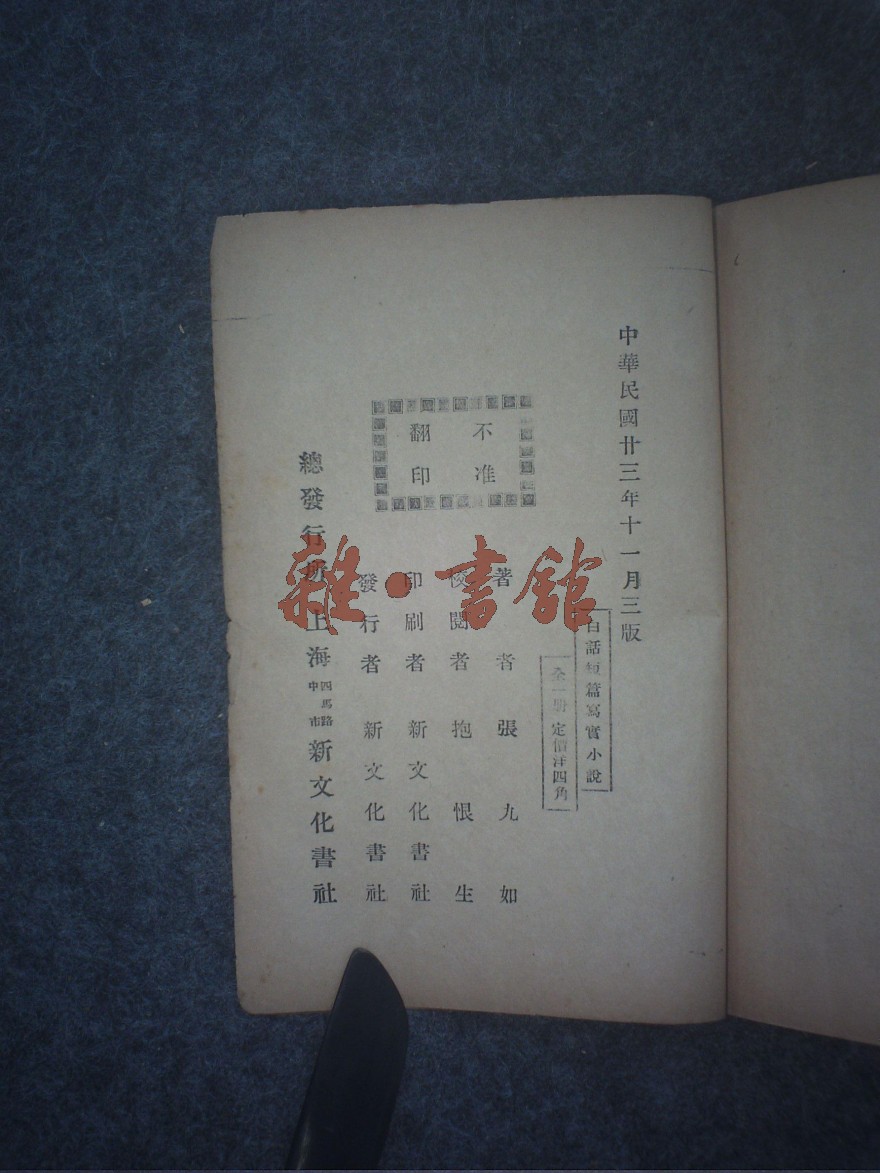 中華民國廿三年十一月三版
白話短篇寫實小說
全一册 定價洋四角
不准
翻印
著者 張九如
校閱者 抱恨生
印刷者 新文化書社
發行者 新文化書社
總發行所 上海四馬路中市 新文化書社
雜·書館